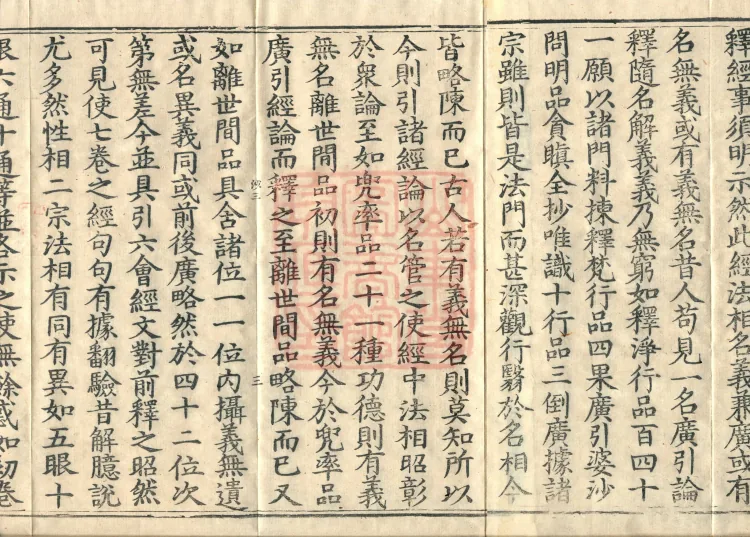 釋經事須明示然此經法相名義兼廣或有
名無義或有義無名昔人苟見一名廣引論
釋隨名解義義乃無窮如釋淨行品百四十
一願以諸門料揀釋梵行品四果廣引婆沙
問明品貪瞋全抄唯識十行品三倒廣據諸
宗雖則皆是法門而甚深觀行翳於名相今
皆略陳而已古人若有義無名則莫知所以
今則引諸經論以名管之使經中法相昭彰
於衆論至如兜率品二十一種功德則有義
無名離世間品初則有名無義今於兜率品
廣引經論而釋之至離世間品略陳而已又
三
如離世間品具含諸位一一位內攝義無遺
或名異義同或前後廣略然於四十二位次
第無差今並具引六會經文對前釋之昭然
可見使七卷之經句句有據翻驗昔解臆說
尤多然性相二宗法相有同有異如五眼十
眼六通十通等並略示之使無餘惑如初卷